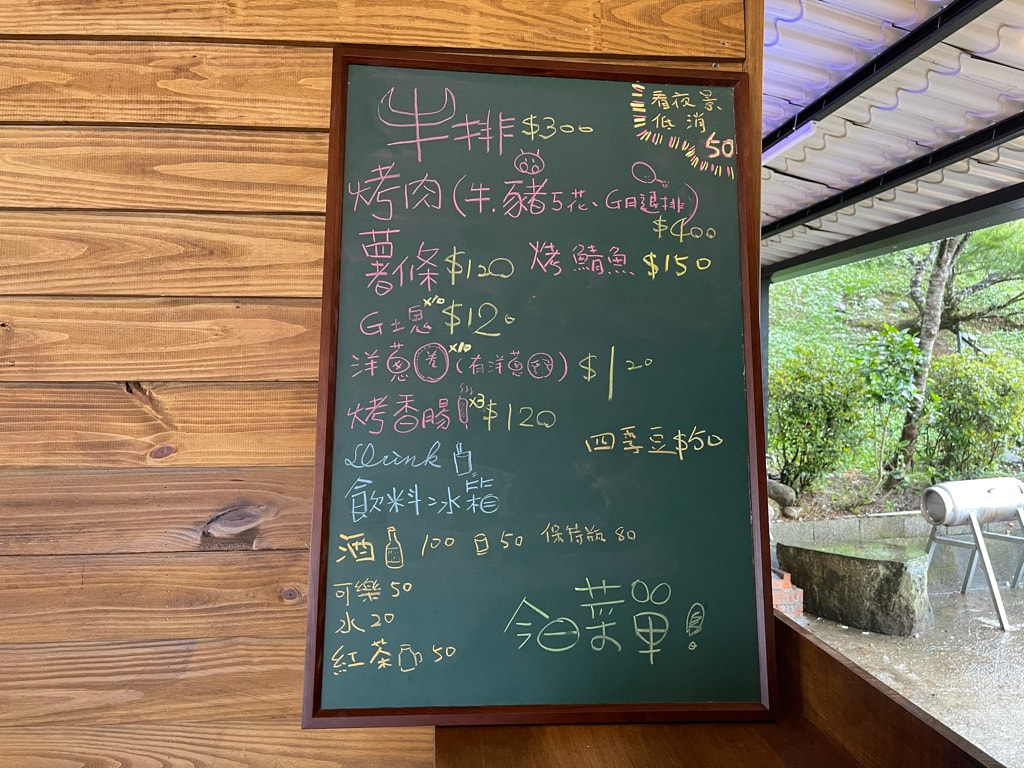 牛排 $300
看夜景
低消
50
烤肉(牛.豬5花、G目退排)
$400
薯條 $120
烤鯖魚 $150
G土息 x10 $120
洋蔥圈 x10 (有洋蔥) $120
烤香腸 x3 $120
四季豆 $50
Drink
飲料:冰箱
酒 100 50 保特瓶 80
可樂 50
水 20
紅茶 50
今日菜單!